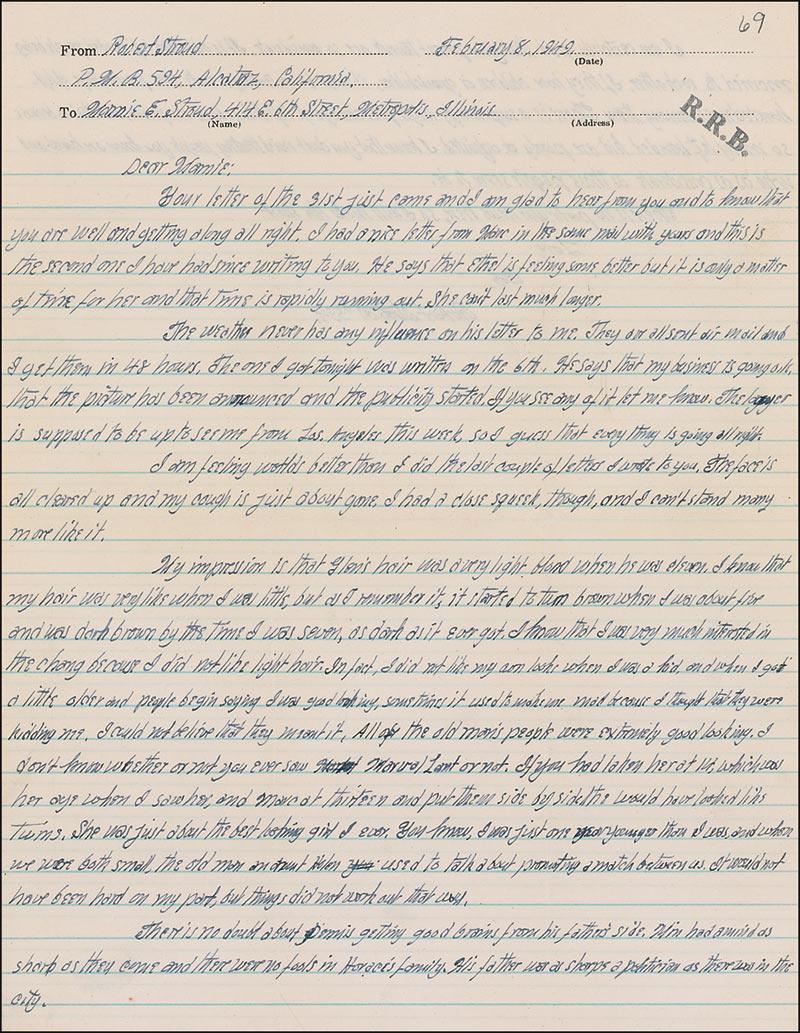 69
From Robert Stroud February 8, 1949
(Date)
P.M.B. 594, Alcatraz, California,
To Mamie E. Stroud, 414 E. 6th Street, Metropolis, Illinois
(Name) (Address)
R.R.B.
Dear Mamie:
Your letter of the 31st just came and I am glad to hear from you and to know that
you are well and getting along all right. I had a nice letter from Marc in the same mail with yours and this is
the second one I have had since writing to you. He says that Ethel is feeling some better but it is only a matter
of time for her and that time is rapidly running out. She can't last much longer.
The weather never has any influence on his letter to me. They are all sent air mail and
I get them in 48 hours. The one I got tonight was written on the 6th. He says that my business is going o.k.
that the picture has been announced and the publicity started. If you see any of it let me know. The lawyer
is supposed to be up to see me from Los Angeles this week, so I guess that every thing is going all right.
I am feeling worlds better than I did the last couple of letters I wrote to you. The face is
all cleared up and my cough is just about gone. I had a close squeek, though, and I can't stand many
more like it.
My impression is that Glen's hair was a very light blond when he was eleven. I know that
my hair was very like when I was little, but as I remember it, it started to turn brown when I was about five
and was dark brown by the time I was seven, as dark as it ever got. I know that I was very much interested in
the chang because I did not like light hair. In fact, I did not like my own looks when I was a kid, and when I got
a little older and people begin saying I was good looking, sometimes it used to make me mad because I thought that they were
kidding me. I could not believe that they meant it. All of the old man's people were extremely good looking. I
don't know whether or not you ever saw or not. If you had taken her at 12, which was
her age when I saw her, and Marc at thirteen and put them side by side the would have looked like
twins. She was just about the best looking girl I ever. You know, I was just one year younger than I was, and when
we were both small, the old man an aunt used to talk about promoting a match between us. It would not
have been hard on my part, but things did not work out that way.
There is no doubt about getting good brains from his father's side. had a mind as
sharp as they come and there were no fools in Horace's family. His father was as sharpe a politician as there was in the
city.